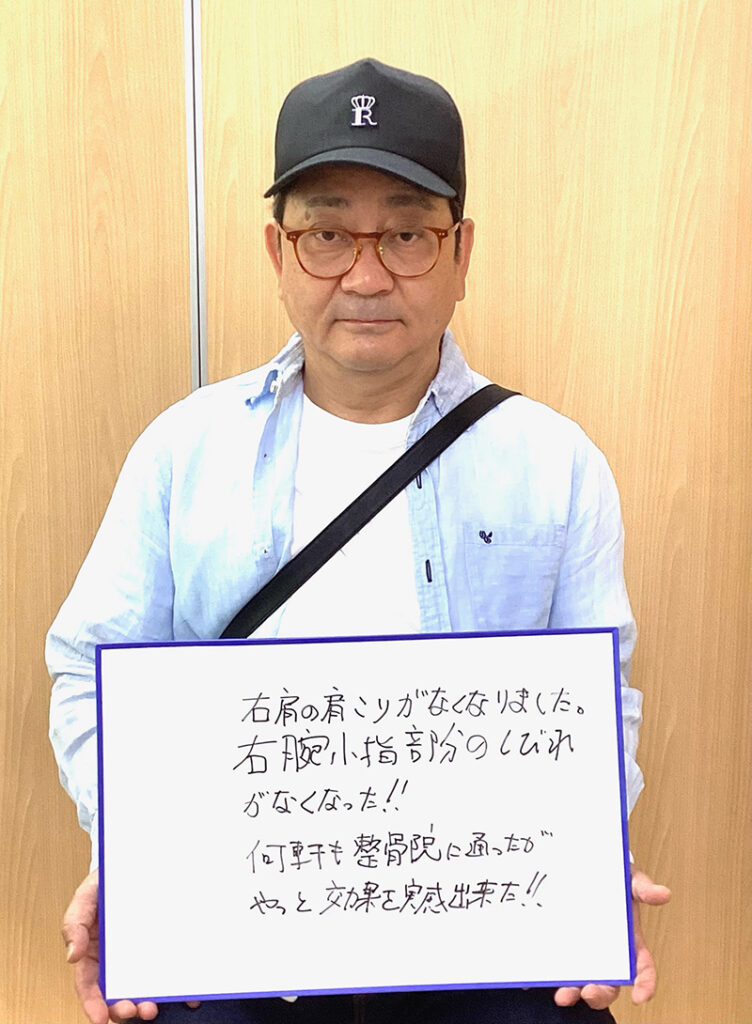 R
右肩の肩こりがなくなりました。
右腕小指部分のしびれ
がなくなった!!
何軒も整骨院に通ったが
やっと効果を実感出来た!!